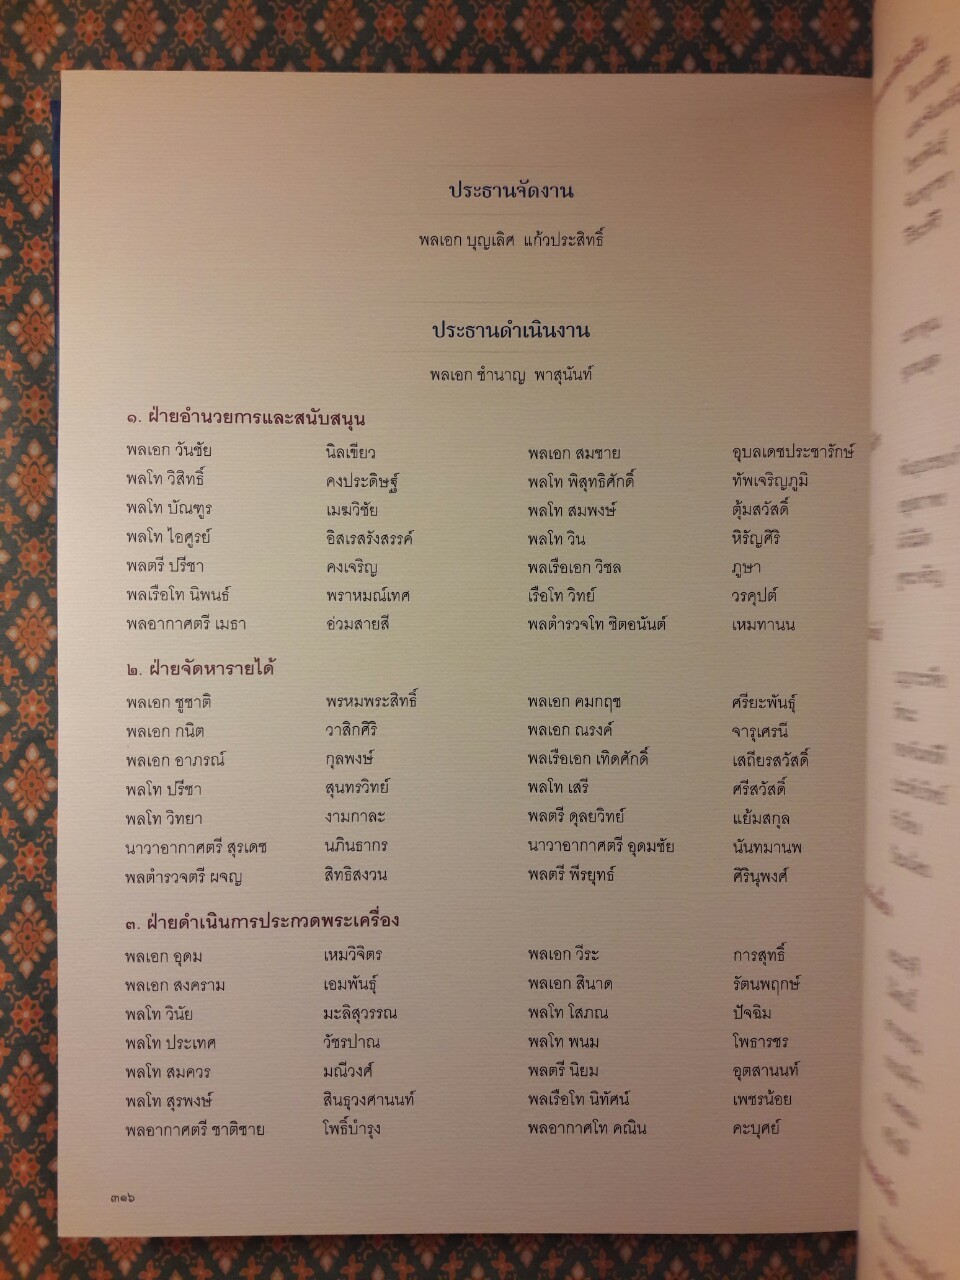 ประธานจัดงาน
พลเอก บุญเลิศ แก้วประสิทธิ์
ประธานดำเนินงาน
พลเอก ชำนาญ พาสุนันท์
๑. ฝ่ายอำนวยการและสนับสนุน
พลเอก วันชัย นิลเขียว พลเอก สมชาย อุบลเดชประชารักษ์
พลโท วิสิทธิ์ คงประดิษฐ์ พลโท พิสุทธิศักดิ์ ทัพเจริญภูมิ
พลโท บัณฑูร เมฆวิชัย พลโท สมพงษ์ ตุ้มสวัสดิ์
พลโท ไอศูรย์ อิสเรสรังสรรค์ พลโท วิน หิรัญศิริ
พลตรี ปรีชา คงเจริญ พลเรือเอก วิชล ภูษา
พลเรือโท นิพนธ์ พราหมณ์เทศ เรือโท วิทย์ วรคุปต์
พลอากาศตรี เมธา อ่วมสายสี พลตำรวจโท ชิตอนันต์ เหมทานน
๒. ฝ่ายจัดหารายได้
พลเอก ชูชาติ พรหมพระสิทธิ์ พลเอก คมกฤช ศรียะพันธุ์
พลเอก กนิต วาสิกศิริ พลเอก ณรงค์ จารุเศรนี
พลเอก อาภรณ์ กุลพงษ์ พลเรือเอก เทิดศักดิ์ เสถียรสวัสดิ์
พลโท ปรีชา สุนทรวิทย์ พลโท เสรี ศรีสวัสดิ์
พลโท วิทยา งามกาละ พลตรี ดุลยวิทย์ แย้มสกุล
นาวาอากาศตรี สุรเดช นภินธากร นาวาอากาศตรี อุดมชัย นันทมานพ
พลตำรวจตรี ผจญ สิทธิสงวน พลตรี พีรยุทธ์ ศิรินุพงศ์
๓. ฝ่ายดำเนินการประกวดพระเครื่อง
พลเอก อุดม เหมวิจิตร พลเอก วีระ การสุทธิ์
พลเอก สงคราม เอมพันธุ์ พลเอก สินาด รัตนพฤกษ์
พลโท วินัย มะลิสุวรรณ พลโท โสภณ ปัจฉิม
พลโท ประเทศ วัชรปาณ พลโท พนม โพธารชร
พลโท สมควร มณีวงศ์ พลตรี นิยม อุตสานนท์
พลโท สุรพงษ์ สินธุวงศานนท์ พลเรือโท นิทัศน์ เพชรน้อย
พลอากาศตรี ชาติชาย โพธิ์บำรุง พลอากาศโท คณิน คะบุศย์
๓๑๖